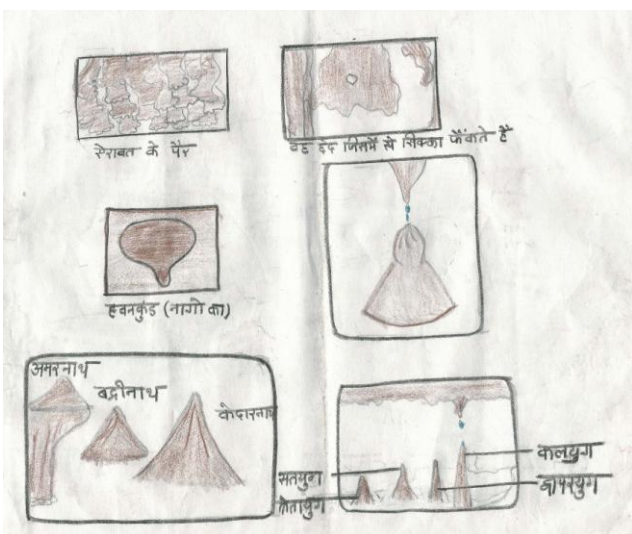 ऐरावत के पैर
वह छेद जिसमें से सिक्का फेंकते हैं
हवनकुंड (नागो का)
अमरनाथ
बद्रीनाथ
केदारनाथ
सतयुग
त्रेतायुग
कलयुग
द्वापरयुग